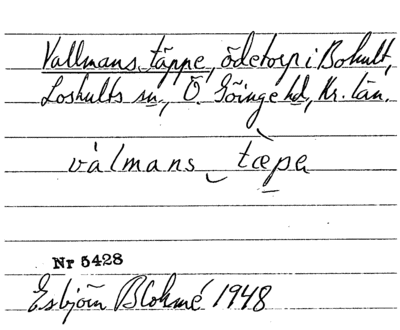 Vallmans täppe, ödetorp i Bohult,
Loshults sn, Ö. Göinge hd, Kr. län.
válmans ‿ tæ̀pa
Nr 5428
Esbjörn Blohmé 1948